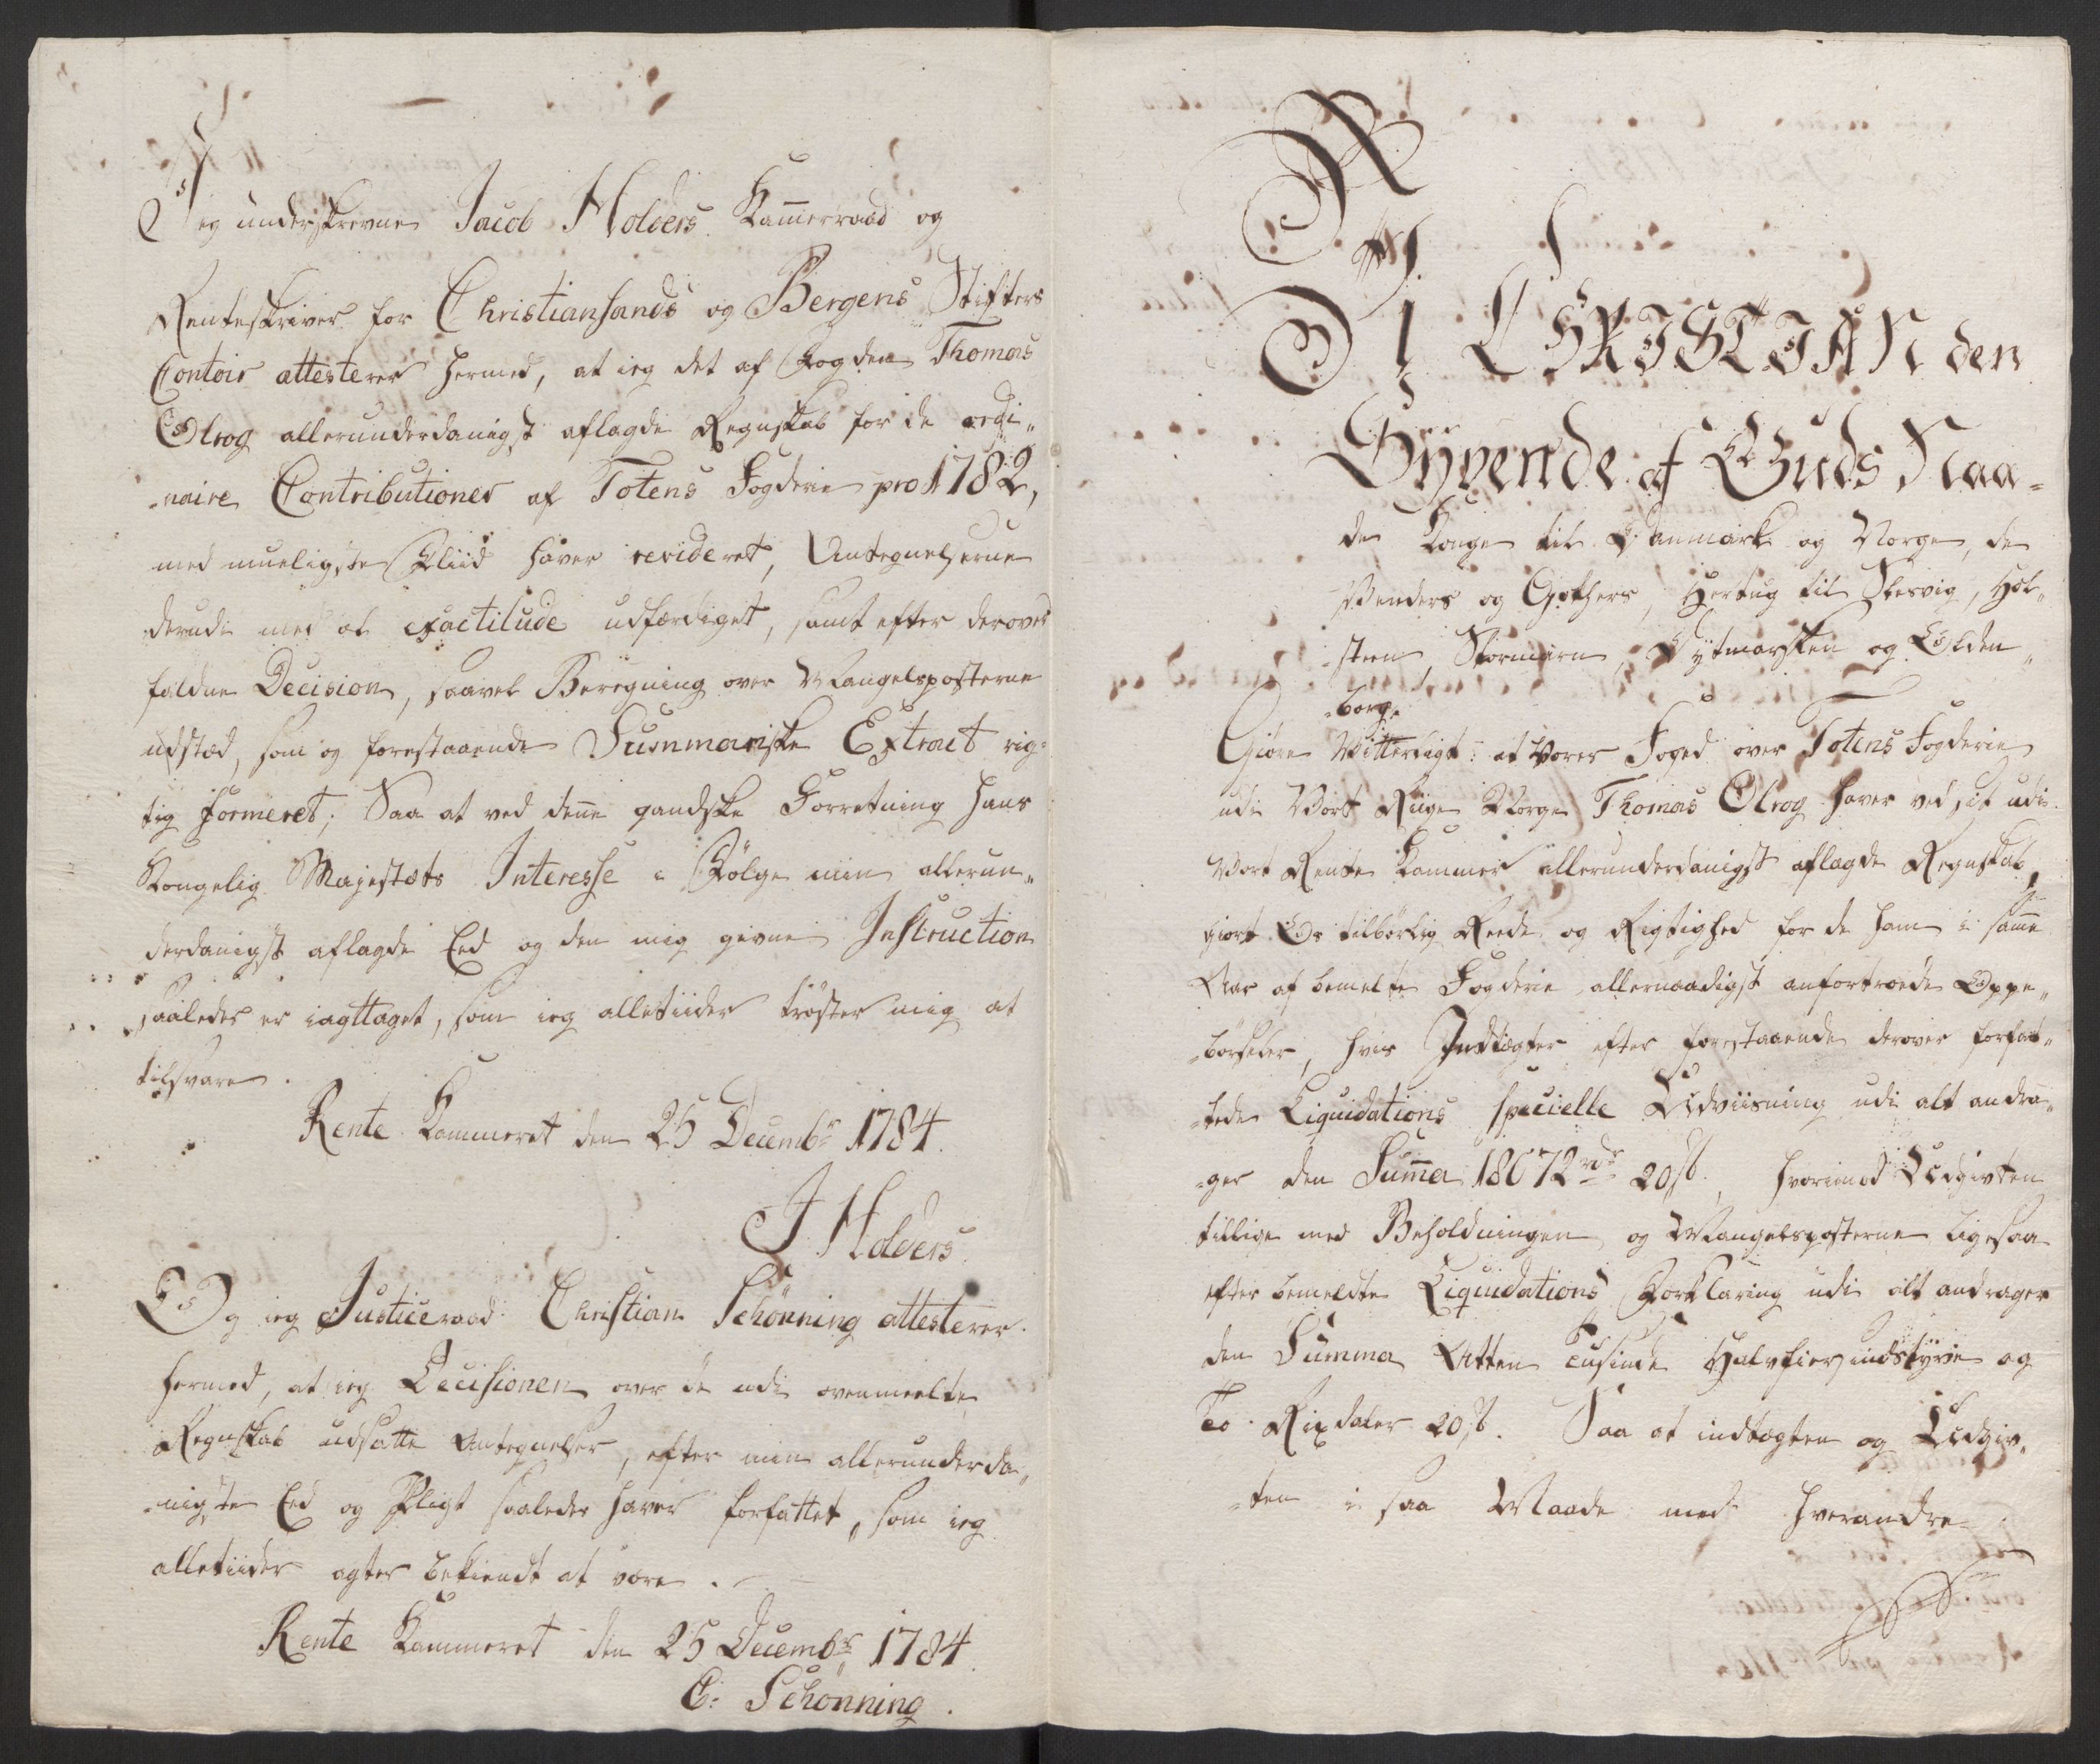 Jeg underskrevne Jacob Holbers Kammerraad og
Renteskriver for Christiansands og Bergens Stifters
Contoir attesterer hermed, at ieg det af Fogden Thomas
Olrog allerunderdanigst aflagde Regnskab for de ordi„
-naire Contributioner af Totens Fogderie pro 1782,
med mueligste Fliid haver revideret, Antegnelserne
derudi med al exactitude udfærdiget, samt efter derover
faldne Decision, saavel Beregning over Mangelsposterne
udstæd, som og forestaaende Summariske Extract rig-
tig formeret; Saa at ved denne gandske Forretning Hans
Kongelig Majestæts Interesse i Følge min allerun„
derdanigst aflagde Eed og den mig givne Instruction
saaledes er iagttaget, som ieg alletiider trøster mig at
tilsvare.
Rente Kammeret den 25 Decembr 1784.
J Holbers
Og ieg Justiceraad Christian Schönning attesterer
hermed, at ieg Decisionen over de udi ovenmeelte
Regnskab udsatte Antegnelser, efter min allerunderda„
-nigste Eed og Pligt saaledes haver forfattet, som ieg
alletiider agter bekiendt at være.
Rente Kammeret den 25 Decembr 1784.
C: Schönning.
Vi CHRISTIAN den
Syvende af Guds Naa-
de Konge til Danmark og Norge, de
Venders og Gothers, Hertug til Slesvig, Hol„
steen, Stormarn, Dytmarsken og Olden„
-borg.
Giøre Vitterligt: at Vores Foged over Totens Fogderie
udi Vort Riige Norge Thomas Olrog haver ved sit udi
Vort Rente Kammer allerunderdanigst aflagde Regnskab,
giort Os tilbørlig Reede og Rigtighed for de ham i samme
Aar af bemelte Fogderie allernaadigst anfortroede Oppe„
-børseler, hvis Indtægter efter forestaaende derover forfat„
-tede Liquidations specielle Udviisning udi alt andra„
-ger den Summa 18072 rdr 20 ß., hvorimod Udgivten
tillige med Beholdningen og Mangelsposterne ligesaa
efter bemeldte Liquidations Forklaring udi alt andrager
den Summa Atten Tusinde Halvfiersindstyve og
To Rixdaler 20 ß. Saa at indtægten og Udgiv„
-ten i saa Maade med hverandre